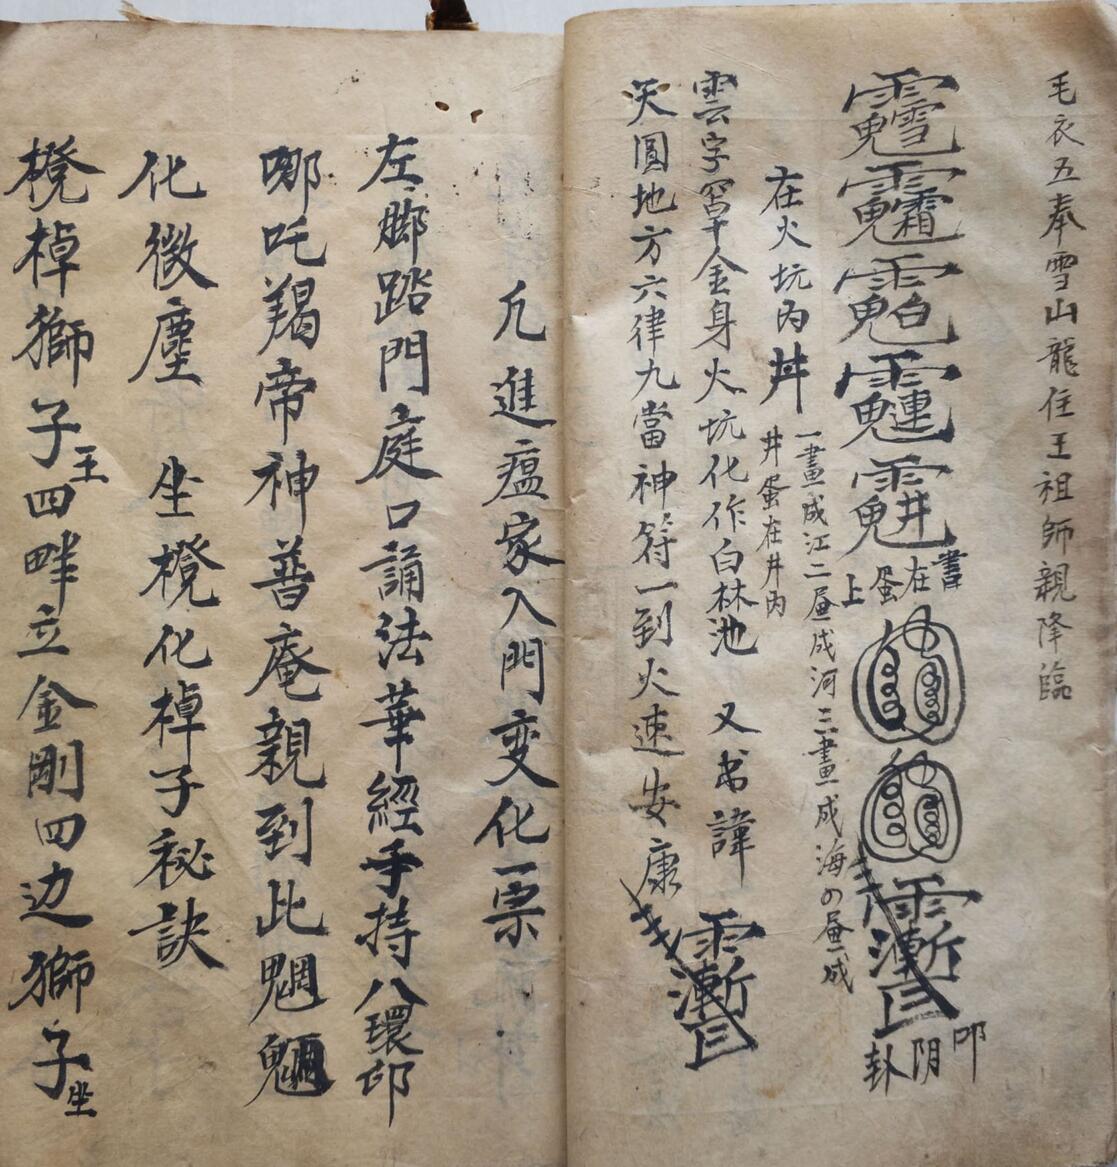 毛衣五奉雪山龍住王祖師親降臨
書在蛋上
叩阴卦
一畫成江二昼成河三畫成海の昼成
井蛋在井內
在火坑內井
雲字窖金身火坑化作白林池 又书諱
天圓地方六律九當神符一到火速安康
凢進瘟家入門变化一票
左脚踏門庭口誦法華經手持八環印
哪吒羯帝神普庵親到此魍魎
化微塵 坐櫈化棹子祕訣
櫈棹獅子王四畔立金剛四边獅子坐